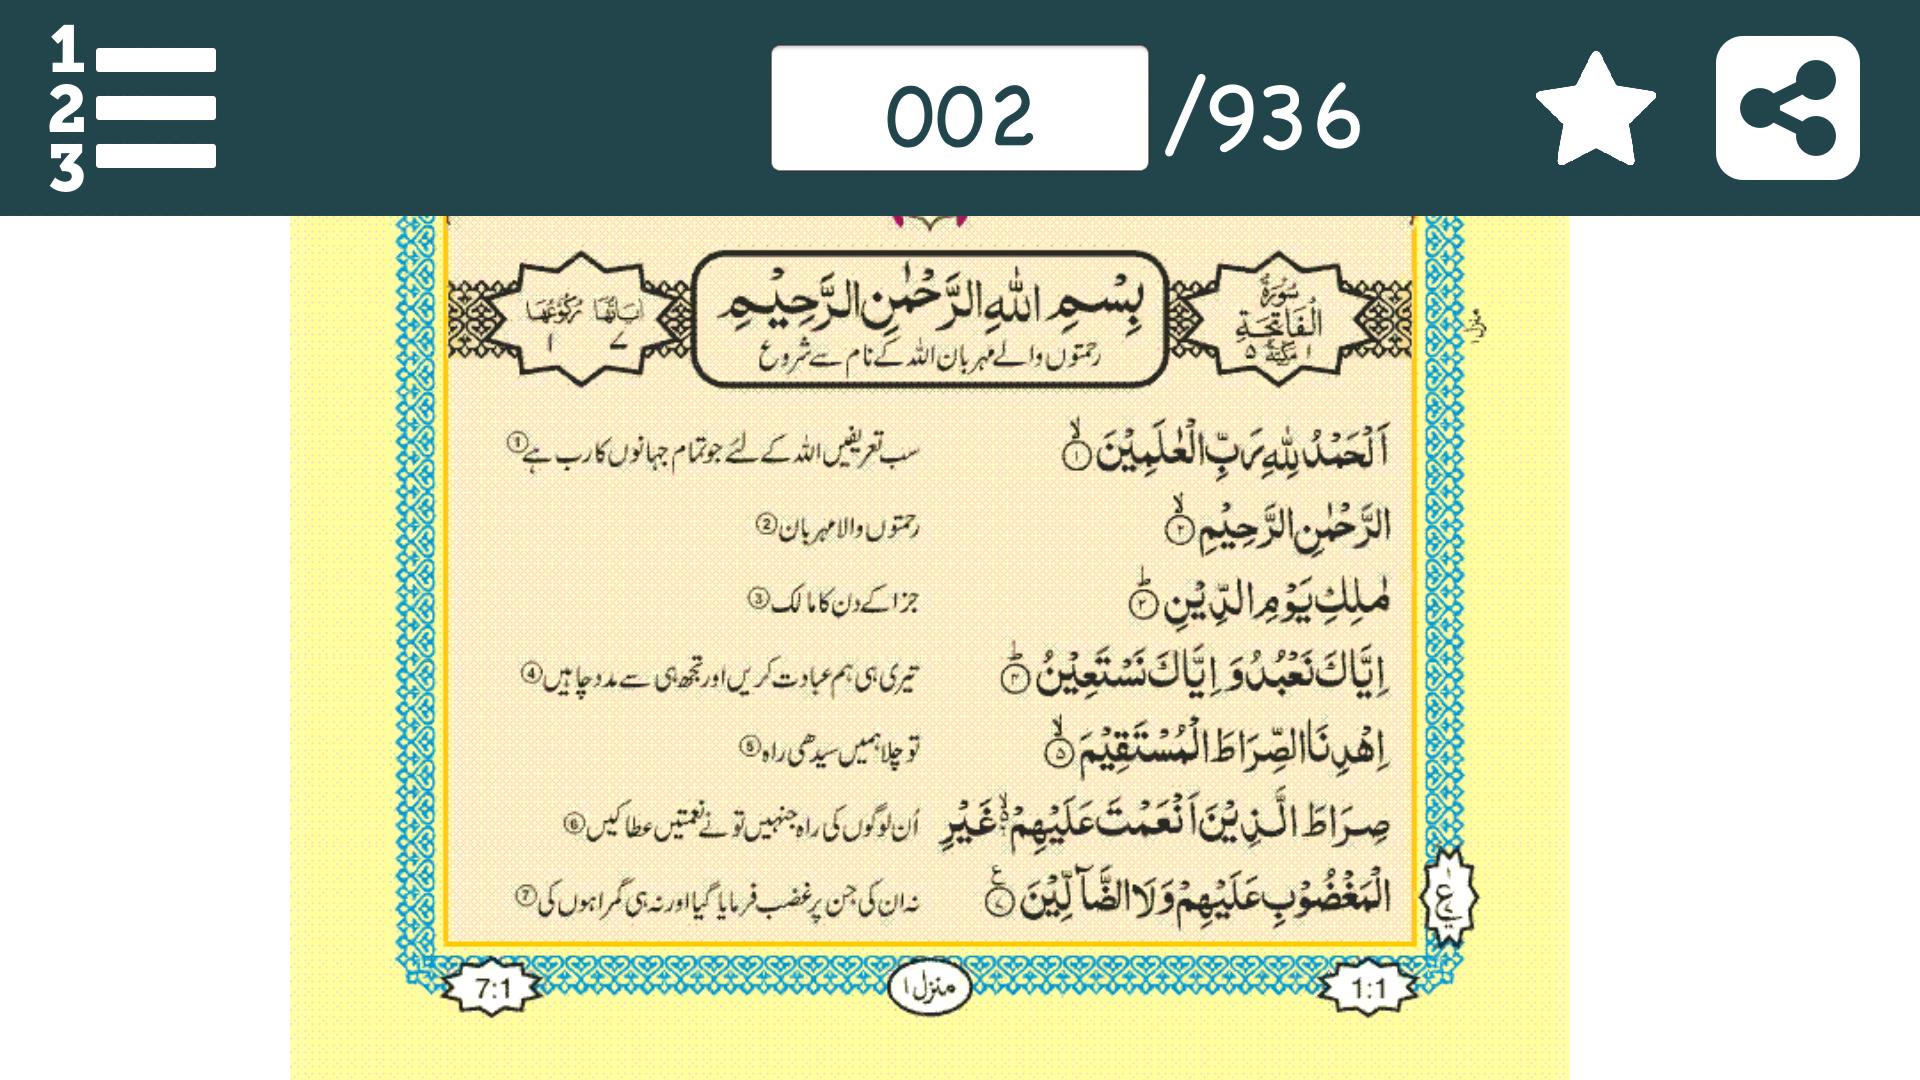 1
2
3
002 /936
سُوْرَةُ
الْفَاتِحَةِ
١ مَكِّيَّةٌ ٥
بِسْمِ اللّٰهِ الرَّحْمٰنِ الرَّحِيْمِ
رحمتوں والے مہربان اللہ کے نام سے شروع
اٰيَاتُهَا رُكُوْعُهَا
٧ ١
اَلْحَمْدُ لِلّٰهِ رَبِّ الْعٰلَمِيْنَ ۙ﴿١﴾ سب تعریفیں اللہ کے لئے جو تمام جہانوں کا رب ہے ①
الرَّحْمٰنِ الرَّحِيْمِ ۙ﴿٢﴾ رحمتوں والا مہربان ②
مٰلِكِ يَوْمِ الدِّيْنِ ؕ﴿٣﴾ جزا کے دن کا مالک ③
اِيَّاكَ نَعْبُدُ وَ اِيَّاكَ نَسْتَعِيْنُ ؕ﴿٤﴾ تیری ہی ہم عبادت کریں اور تجھ ہی سے مدد چاہیں ④
اِهْدِنَا الصِّرَاطَ الْمُسْتَقِيْمَ ۙ﴿٥﴾ تو چلا ہمیں سیدھی راہ ⑤
صِرَاطَ الَّذِيْنَ اَنْعَمْتَ عَلَيْهِمْ ۙ۬ غَيْرِ اُن لوگوں کی راہ جنہیں تو نے نعمتیں عطا کیں ⑥
الْمَغْضُوْبِ عَلَيْهِمْ وَلَا الضَّآلِّيْنَ ﴿٧﴾ نہ ان کی جن پر غضب فرمایا گیا اور نہ ہی گمراہوں کی ⑦
١
ع
٧
1:1 منزل ١ 7:1